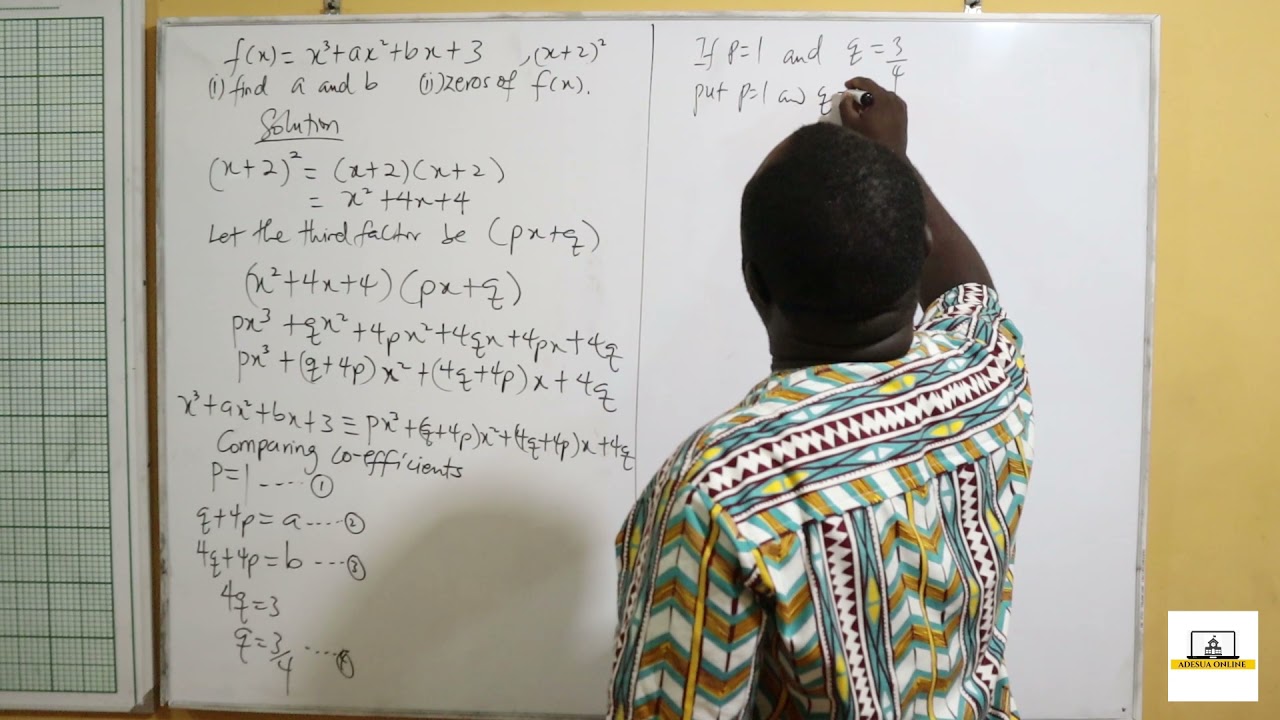 f(x) = x³+ax²+bx+3 , (x+2)²
(i) find a and b (ii) zeros of f(x).
Solution
(x+2)² = (x+2)(x+2)
= x² +4x+4
Let the third factor be (px+q)
(x²+4x+4)(px+q)
px³ +qx² +4px²+4qx+4px+4q
px³ +(q+4p)x²+(4q+4p)x+4q
x³+ax²+bx+3 ≡ px³+(q+4p)x²+(4q+4p)x+4q
Comparing co-efficients
P=1 ---- ①
q+4p = a ----- ②
4q+4p = b --- ③
4q=3
q=3/4 ----
If P=1 and q = 3/4
put p=1 and q =
ADESUA ONLINE